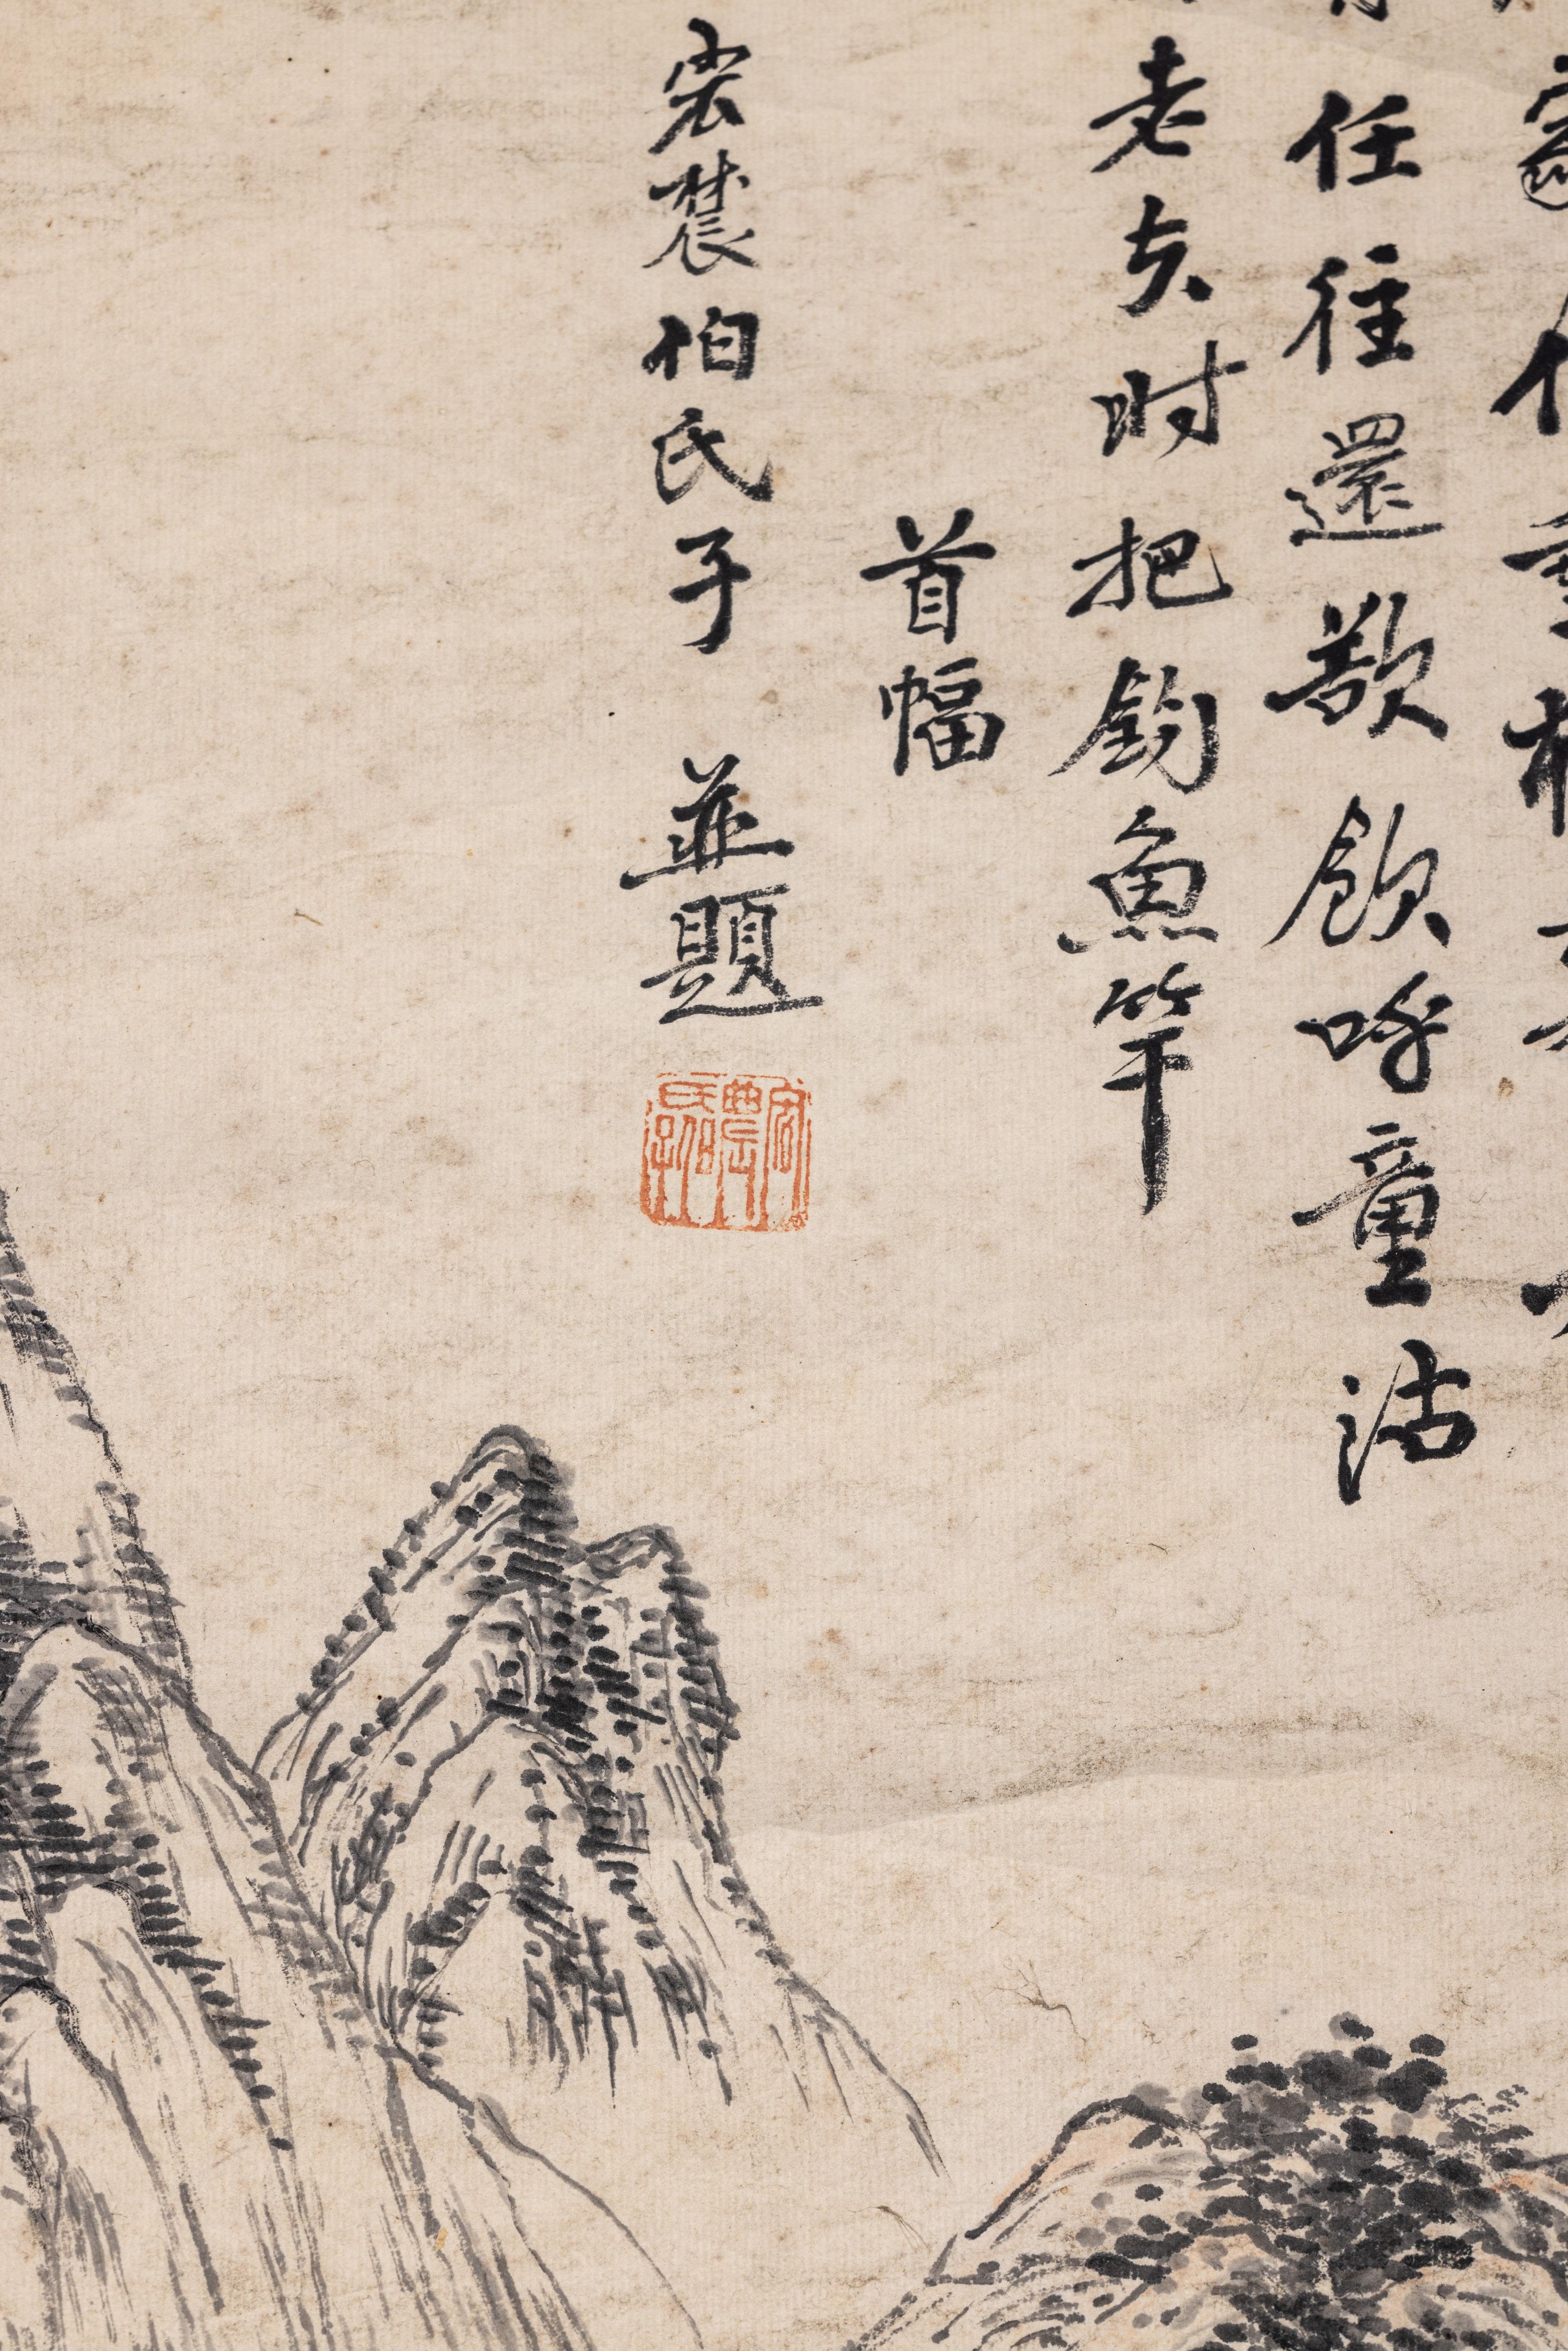 任往還歡飲呼童沽
老去时把釣魚竿
首幅
宏農伯氏子 並題